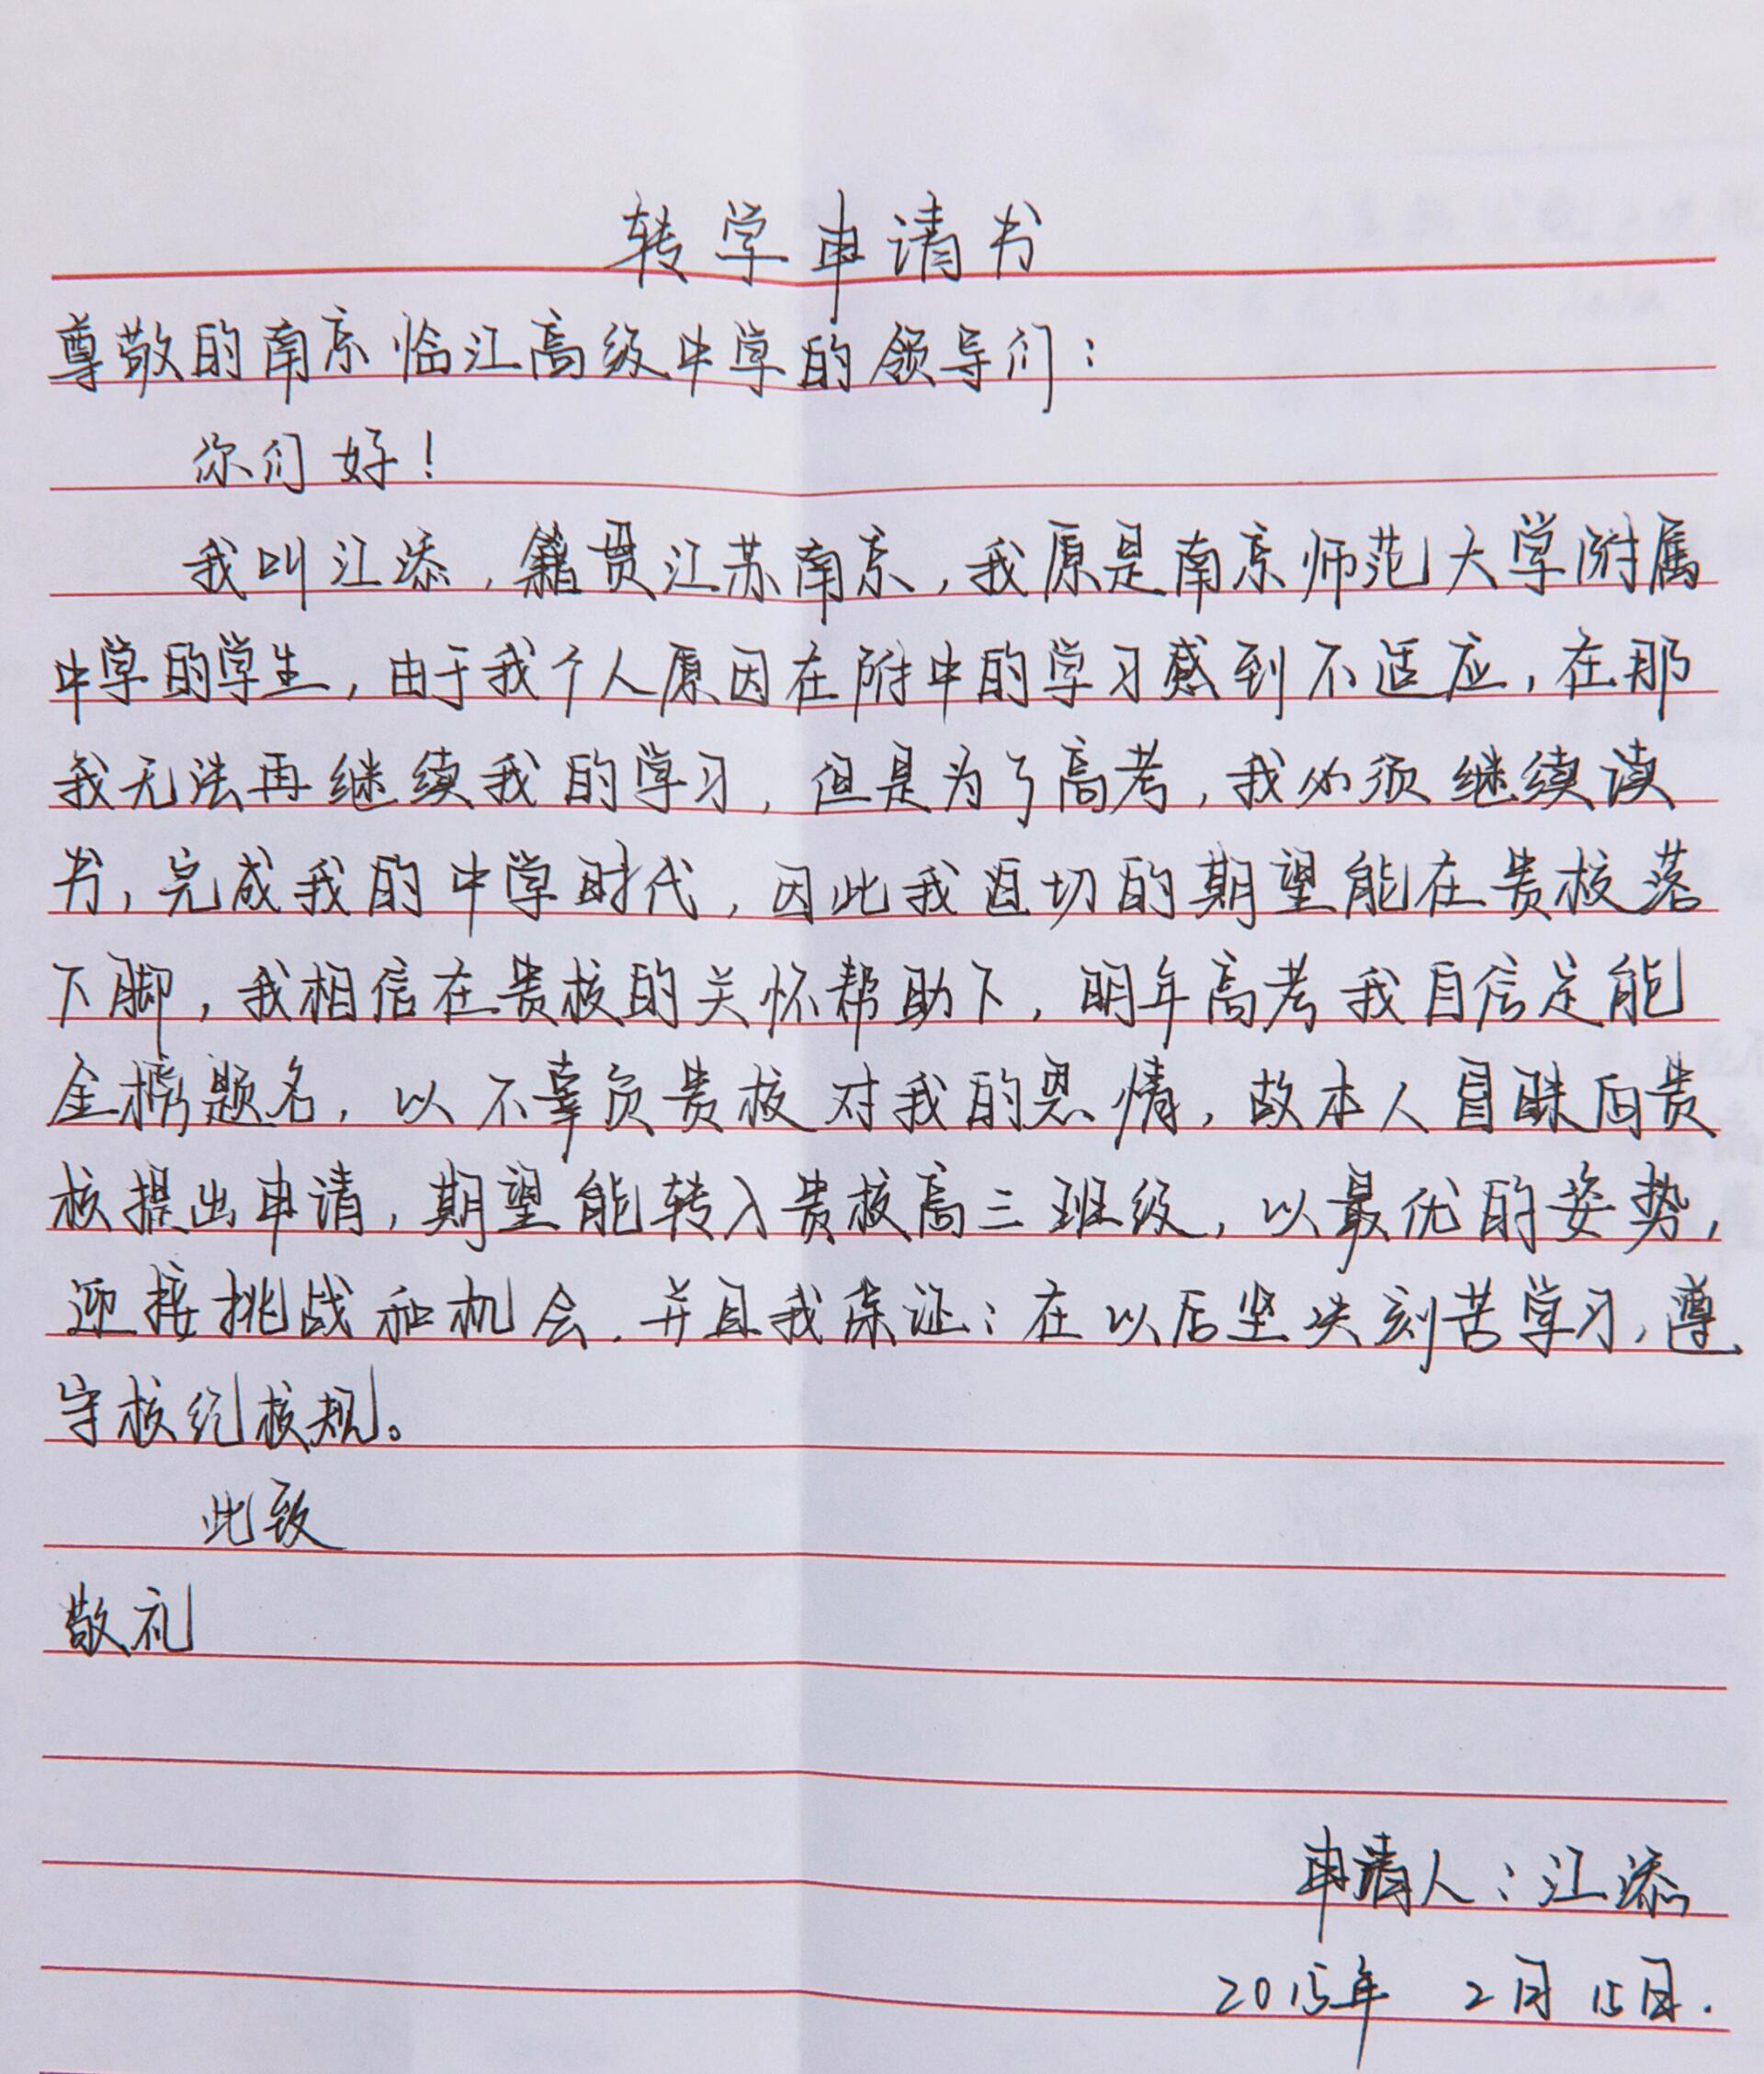 转学申请书
尊敬的南京临江高级中学的领导们：
你们好！
我叫江添，籍贯江苏南京，我原是南京师范大学附属
中学的学生，由于我个人原因在附中的学习感到不适应，在那
我无法再继续我的学习，但是为了高考，我必须继续读
书，完成我的中学时代，因此我迫切的期望能在贵校落
下脚，我相信在贵校的关怀帮助下，明年高考我自信定能
金榜题名，以不辜负贵校对我的恩情，故本人冒昧向贵
校提出申请，期望能转入贵校高三班级，以最优的姿势，
迎接挑战和机会．并且我保证：在以后坚决刻苦学习，遵
守校纪校规。
此致
敬礼
申请人：江添
2015年 2月15日．